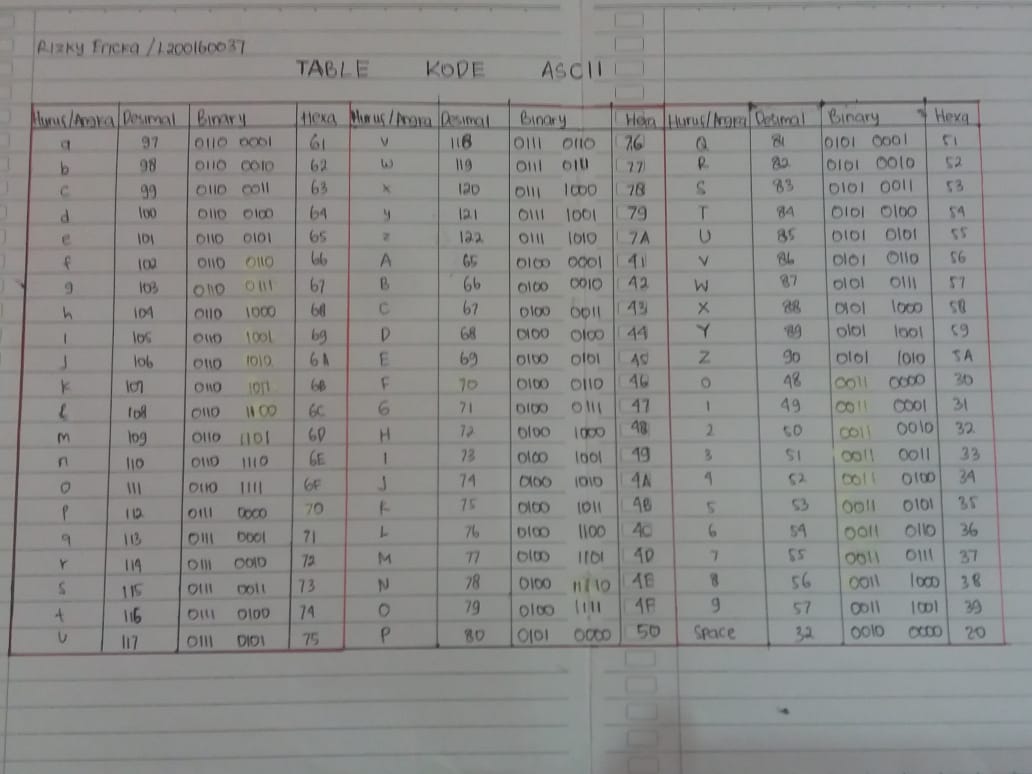 Rizky Ericka / L200160037
TABLE KODE ASCII
Huruf/Angka Desimal Binary Hexa Huruf/Angka Desimal Binary Hexa Huruf/Angka Desimal Binary Hexa
a 97 0110 0001 61 v 118 0111 0110 76 Q 81 0101 0001 51
b 98 0110 0010 62 w 119 0111 0111 77 R 82 0101 0010 52
c 99 0110 0011 63 x 120 0111 1000 78 S 83 0101 0011 53
d 100 0110 0100 64 y 121 0111 1001 79 T 84 0101 0100 54
e 101 0110 0101 65 z 122 0111 1010 7A U 85 0101 0101 55
f 102 0110 0110 66 A 65 0100 0001 41 V 86 0101 0110 56
g 103 0110 0111 67 B 66 0100 0010 42 W 87 0101 0111 57
h 104 0110 1000 68 C 67 0100 0011 43 X 88 0101 1000 58
i 105 0110 1001 69 D 68 0100 0100 44 Y 89 0101 1001 59
j 106 0110 1010 6A E 69 0100 0101 45 Z 90 0101 1010 5A
k 107 0110 1011 6B F 70 0100 0110 46 0 48 0011 0000 30
l 108 0110 1100 6C G 71 0100 0111 47 1 49 0011 0001 31
m 109 0110 1101 6D H 72 0100 1000 48 2 50 0011 0010 32
n 110 0110 1110 6E I 73 0100 1001 49 3 51 0011 0011 33
o 111 0110 1111 6F J 74 0100 1010 4A 4 52 0011 0100 34
p 112 0111 0000 70 K 75 0100 1011 4B 5 53 0011 0101 35
q 113 0111 0001 71 L 76 0100 1100 4C 6 54 0011 0110 36
r 114 0111 0010 72 M 77 0100 1101 4D 7 55 0011 0111 37
s 115 0111 0011 73 N 78 0100 1110 4E 8 56 0011 1000 38
t 116 0111 0100 74 O 79 0100 1111 4F 9 57 0011 1001 39
u 117 0111 0101 75 P 80 0101 0000 50 Space 32 0010 0000 20